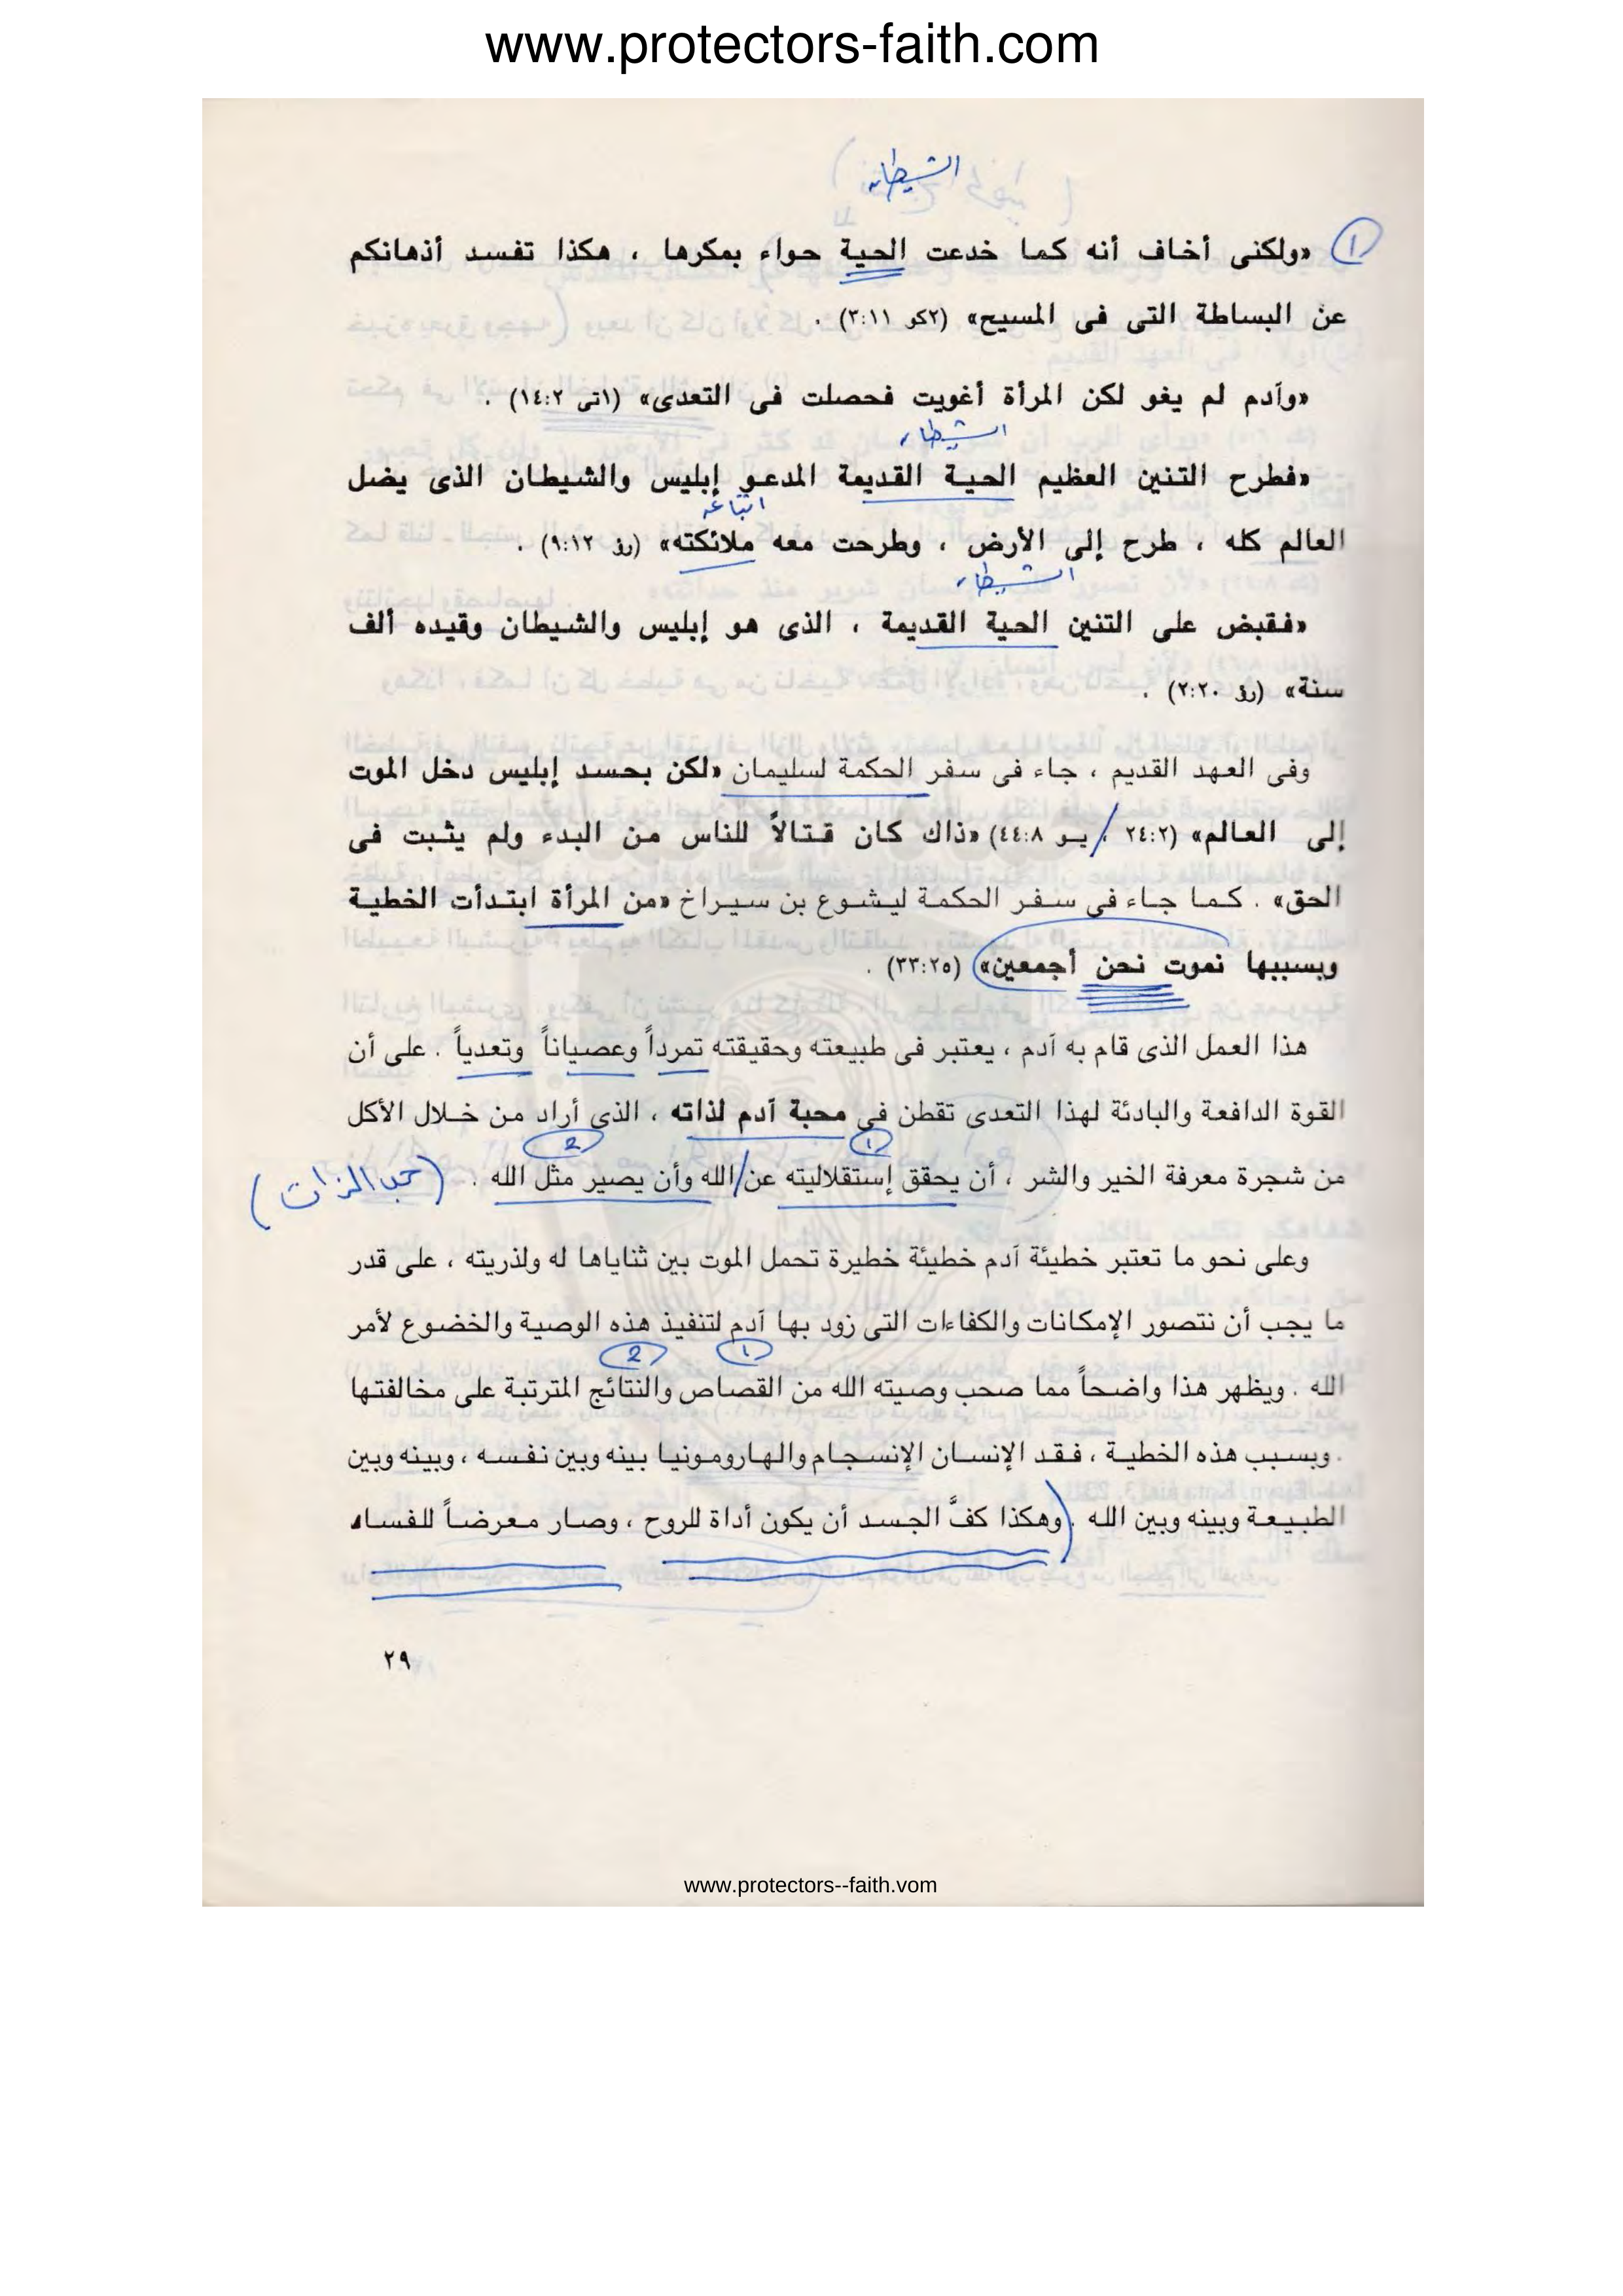 www.protectors-faith.com
الشيطان
١ «ولكنى أخاف أنه كما خدعت الحية حواء بمكرها ، هكذا تفسد أذهانكم
عن البساطة التى فى المسيح» (٢كو ٣:١١) .
«وآدم لم يغو لكن المرأة أغويت فحصلت فى التعدى» (١تى ١٤:٢) .
الشيطان
«فطرح التنين العظيم الحية القديمة المدعو إبليس والشيطان الذى يضل
اتباعه
العالم كله ، طرح إلى الأرض ، وطرحت معه ملائكته» (رؤ ٩:١٢) .
الشيطان
«فقبض على التنين الحية القديمة ، الذى هو إبليس والشيطان وقيده ألف
سنة» (رؤ ٢:٢٠) .
وفى العهد القديم ، جاء فى سفر الحكمة لسليمان «لكن بحسد إبليس دخل الموت
إلى العالم» (٢٤:٢ ، يو ٤٤:٨) «ذاك كان قتالاً للناس من البدء ولم يثبت فى
الحق» . كما جاء فى سفر الحكمة ليشوع بن سيراخ «من المرأة ابتدأت الخطية
وبسببها نموت نحن أجمعين» (٣٣:٢٥) .
هذا العمل الذى قام به آدم ، يعتبر فى طبيعته وحقيقته تمرداً وعصياناً وتعدياً . على أن
القوة الدافعة والبادئة لهذا التعدى تقطن فى محبة آدم لذاته ، الذى أراد من خلال الأكل
١ 2
من شجرة معرفة الخير والشر ، أن يحقق إستقلاليته عن الله وأن يصير مثل الله . (حب الذات)
وعلى نحو ما تعتبر خطيئة آدم خطيئة خطيرة تحمل الموت بين ثناياها له ولذريته ، على قدر
ما يجب أن نتصور الإمكانات والكفاءات التى زود بها آدم لتنفيذ هذه الوصية والخضوع لأمر
١ 2
الله . ويظهر هذا واضحاً مما صحب وصيته الله من القصاص والنتائج المترتبة على مخالفتها
. وبسبب هذه الخطية ، فقد الإنسان الإنسجام والهارومونيا بينه وبين نفسه ، وبينه وبين
الطبيعة وبينه وبين الله . (وهكذا كفَّ الجسد أن يكون أداة للروح ، وصار معرضاً للفساد
٢٩
www.protectors--faith.vom